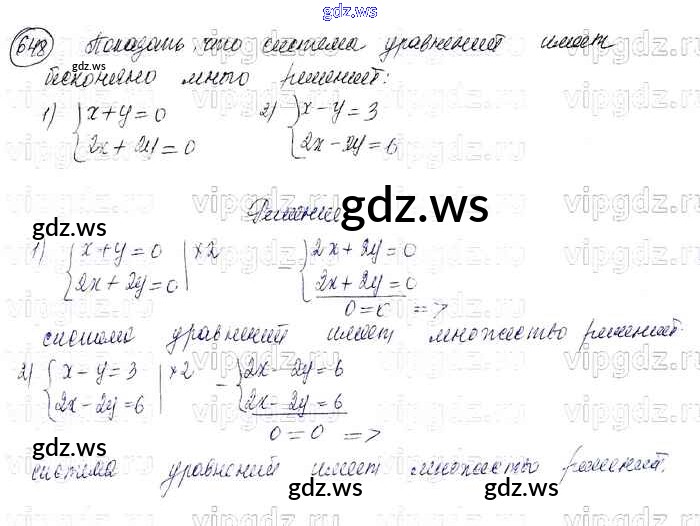 gdz.ws
648 Показать, что система уравнений имеет
бесконечно много решений:
1) { x+y=0 2) { x-y=3
2x+2y=0 2x-2y=6
gdz.ws Решение gdz.ws
1) { x+y=0 | ×2 - { 2x+2y=0
2x+2y=0 2x+2y=0
0=0 =>
система уравнений имеет множество решений.
2) { x-y=3 | ×2 - { 2x-2y=6
2x-2y=6 2x-2y=6
0=0 =>
gdz.ws gdz.ws
система уравнений имеет множество решений.
gdz.ws gdz.ws
gdz.ws